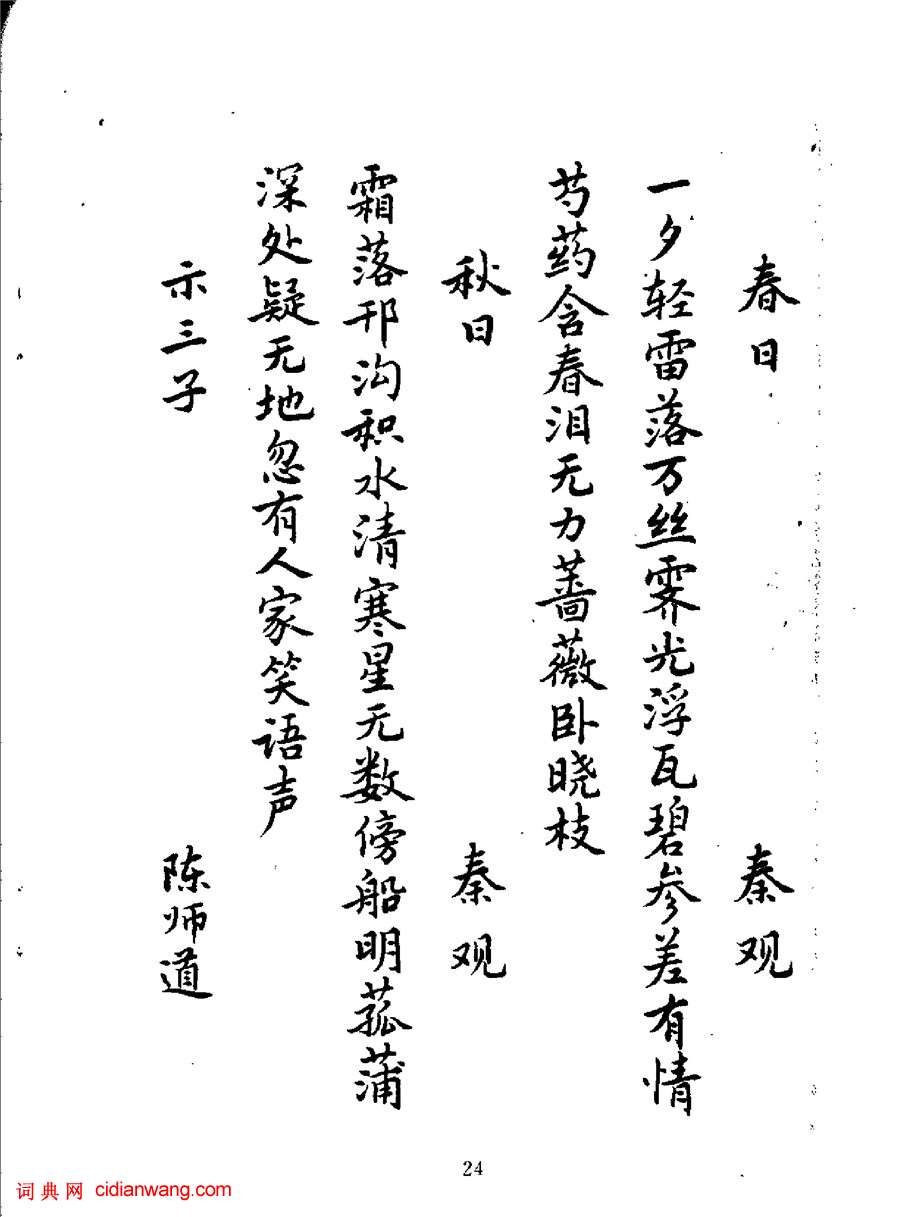 春日 秦观
一夕轻雷落万丝霁光浮瓦碧参差有情
芍药含春泪无力蔷薇卧晓枝
秋日 秦观
霜落邗沟积水清寒星无数傍船明菰蒲
深处疑无地忽有人家笑语声
示三子 陈师道
24
词典网 cidianwang.com